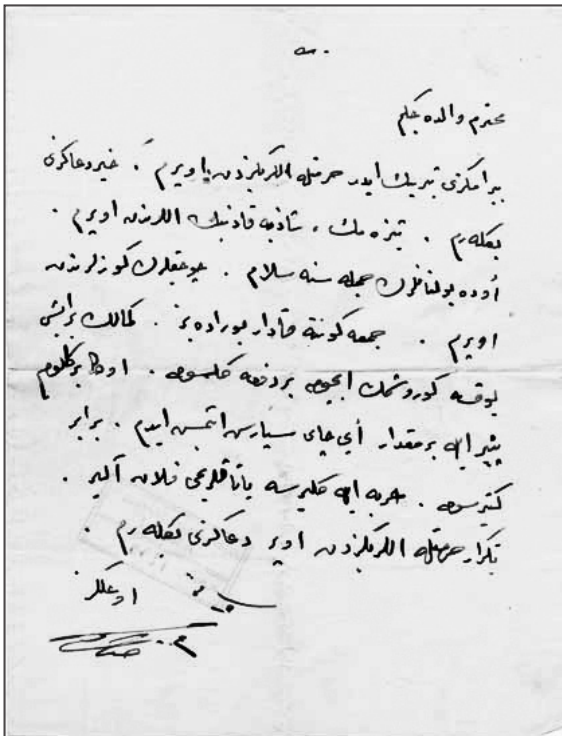 محترم والده جكم
بيرامكزى تبريك ايدر حرمتله اللريكزدن اوپرم . خيردعاكزى
بكلەرم . تيزه مك ، شاذيه قادينك اللرندن اوپرم .
أوده بولنانلرك جمله سنه سلام . چوجقلرك كوزلرندن
اوپرم . جمعه كوننه قادار بوراده يز . كمالك برايشى
يوقسه كوروشمك ايچون بردفعه كلسون . اوكا بر كيلو
پينير ايله بر مقدار أيى چاى سپارش ايتمش ايدم . برابر
كتيرسون . عربه ايله كليرسه ياتاقلريمى فلان آلير .
تكرار حرمتله اللريكزدن اوپر دعاكزى بكلەرم .
اوغلكز